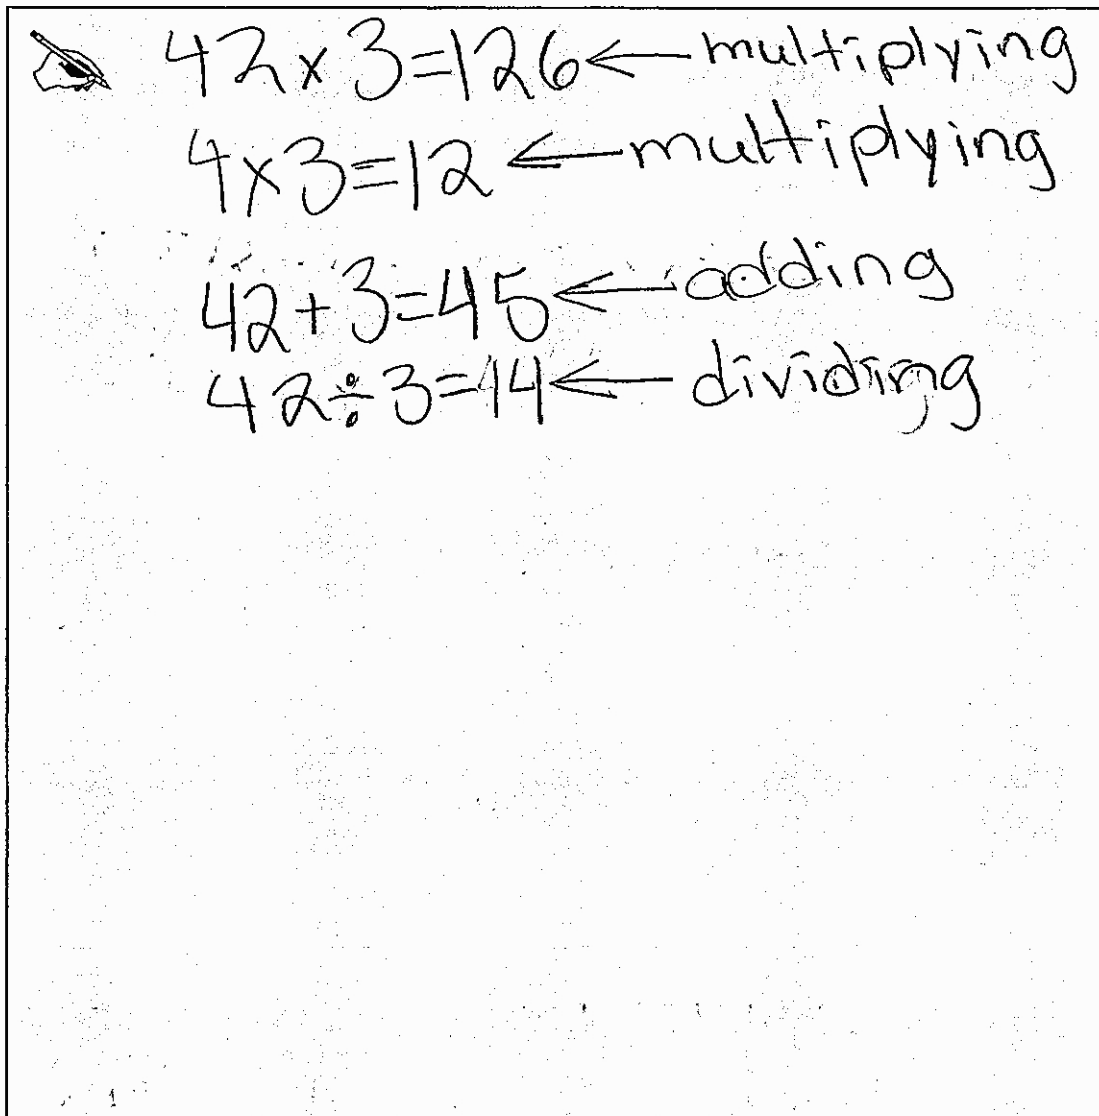 42 x 3 = 126 ← multiplying
4 x 3 = 12 ← multiplying
42 + 3 = 45 ← adding
42 ÷ 3 = 14 ← dividing